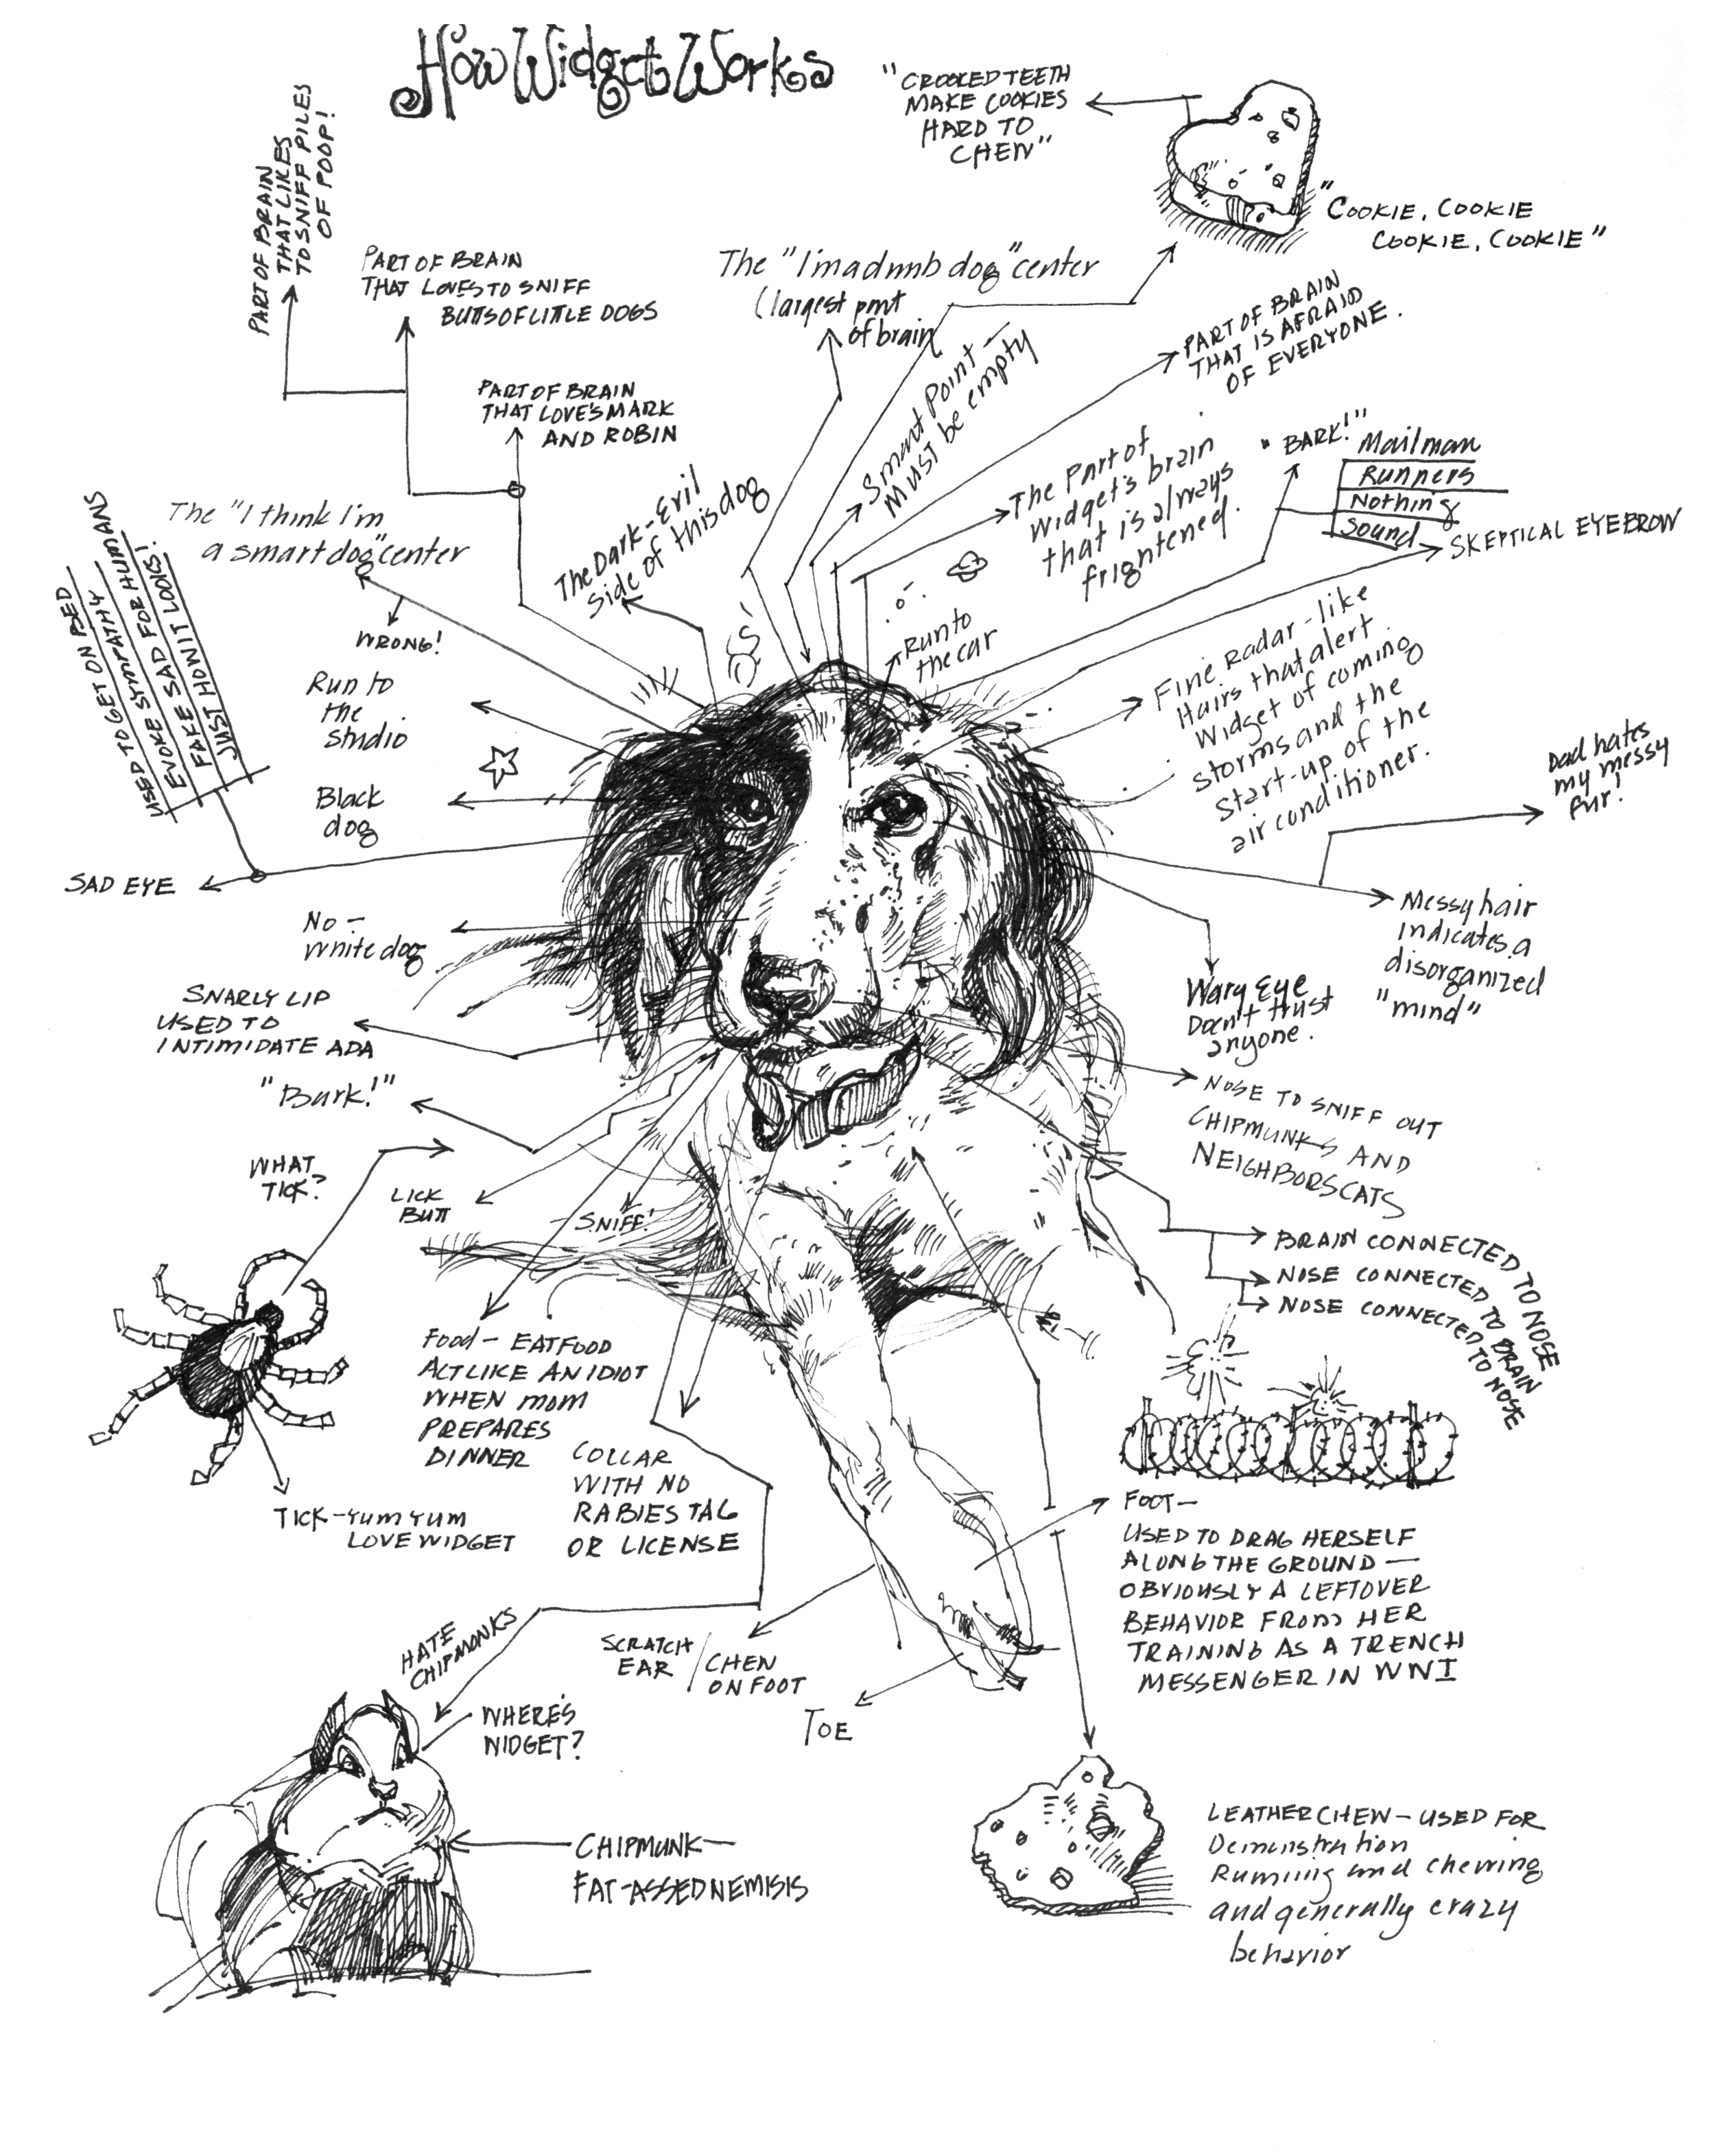 How Widget Works
"CROOKED TEETH
MAKE COOKIES
HARD TO
CHEW"
"COOKIE, COOKIE
COOKIE, COOKIE"
PART OF BRAIN
THAT LIKES
TO SNIFF PILES
OF POOP!
PART OF BRAIN
THAT LOVES TO SNIFF
BUTTS OF LITTLE DOGS
The "I'm a dumb dog" center
(largest part
of brain
PART OF BRAIN
THAT IS AFRAID
OF EVERYONE.
PART OF BRAIN
THAT LOVE'S MARK
AND ROBIN
Smart Point —
Must be empty
The Part of
Widget's brain
that is always
frightened.
"BARK!"
Mailman
Runners
Nothing
Sound
SKEPTICAL EYEBROW
The "I think I'm
a smart dog" center
WRONG!
The Dark-Evil
Side of this dog
Run to
the car
USED TO GET ON BED
EVOKE SYMPATHY
FAKE SAD FOR HUMANS
JUST HOW IT LOOKS!
Run to
the
studio
Fine Radar-like
Hairs that alert
Widget of coming
storms and the
start-up of the
air conditioner.
Dad hates
my messy
fur!
Black
dog
SAD EYE
No —
White dog
Messy hair
indicates a
disorganized
"mind"
Wary Eye
Doesn't trust
anyone.
SNARLY LIP
USED TO
INTIMIDATE ADA
"Bark!"
NOSE TO SNIFF OUT
CHIPMUNKS AND
NEIGHBORS CATS
WHAT
TICK?
LICK
BUTT
SNIFF!
BRAIN CONNECTED TO NOSE
NOSE CONNECTED TO BRAIN
NOSE CONNECTED TO NOSE
Food — EAT FOOD
ACT LIKE AN IDIOT
WHEN MOM
PREPARES
DINNER
COLLAR
WITH NO
RABIES TAG
OR LICENSE
TICK-YUM YUM
LOVE WIDGET
FOOT —
USED TO DRAG HERSELF
ALONG THE GROUND —
OBVIOUSLY A LEFTOVER
BEHAVIOR FROM HER
TRAINING AS A TRENCH
MESSENGER IN WWI
HATE
CHIPMONKS
SCRATCH
EAR /
CHEW
ON FOOT
TOE
WHERE'S
WIDGET?
CHIPMUNK —
FAT-ASSED NEMISIS
LEATHER CHEW — USED FOR
Demonstration
Running and chewing
and generally crazy
behavior